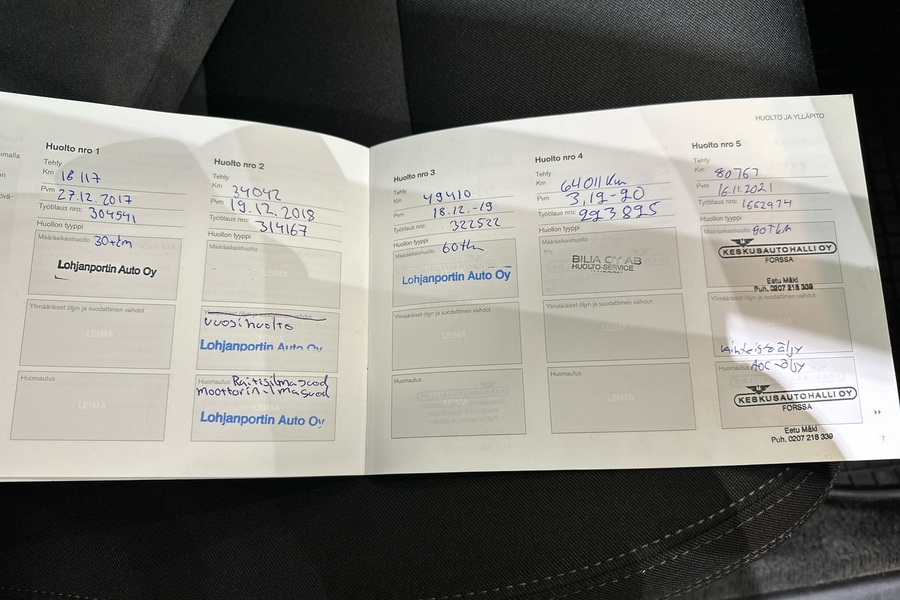 HUOLTO JA YLLÄPITO
Huolto nro 1
Tehty
Km 18 117
Pvm 27.12.2017
Työtilaus nro: 304541
Huollon tyyppi
Määräaikaishuolto 30tkm
Lohjanportin Auto Oy
Ylimääräiset öljyn ja suodattimen vaihdot
LEIMA
Huomautus
LEIMA
Huolto nro 2
Tehty
Km 34042
Pvm 19.12.2018
Työtilaus nro: 314167
Huollon tyyppi
Määräaikaishuolto
LEIMA
vuosihuolto
Lohjanportin Auto Oy
Huomautus Raitisilmasuod
moottorin ilmasuod
Lohjanportin Auto Oy
Huolto nro 3
Tehty
Km 49410
Pvm 18.12.-19
Työtilaus nro: 322522
Huollon tyyppi
Määräaikaishuolto 60tkm
Lohjanportin Auto Oy
Ylimääräiset öljyn ja suodattimen vaihdot
LEIMA
Huomautus
Huolto nro 4
Tehty
Km 64011 Km
Pvm 3,12-20
Työtilaus nro: 293895
Huollon tyyppi
Määräaikaishuolto
BILIA OY AB
HUOLTO-SERVICE
Ylimääräiset öljyn ja suodattimen vaihdot
LEIMA
Huomautus
LEIMA
Huolto nro 5
Tehty
Km 80767
Pvm 16.11.2021
Työtilaus nro: 1662974
Huollon tyyppi
Määräaikaishuolto 90Tkm
KESKUSAUTOHALLI OY
FORSSA
Eetu Mäki
Puh. 0207 218 339
Ylimääräiset öljyn ja suodattimen vaihdot
LEIMA
vaihteisto öljy
Huomautus AOC-öljy
KESKUSAUTOHALLI OY
FORSSA
Eetu Mäki
Puh. 0207 218 339
7